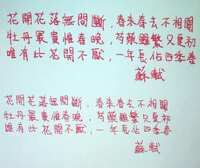 花開花落無間斷，春來春去不相關
牡丹最貴惟春晚，芍藥雖繁只夏初
唯有此花開不厭，一年長佔四季春
蘇軾
花開花落無間斷，春來春去不相關
牡丹最貴惟春晚，芍藥雖繁只夏初
唯有此花開不厭，一年長佔四季春
蘇軾